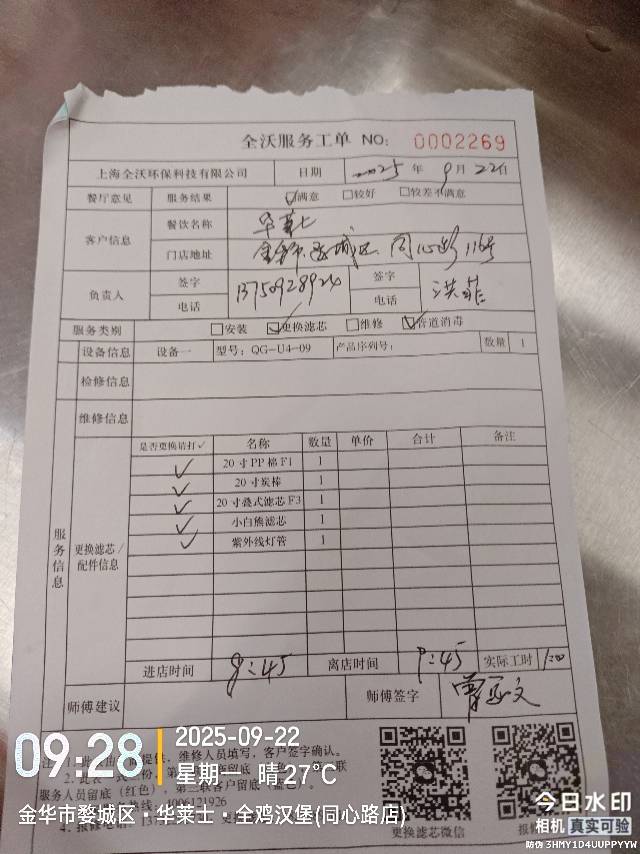 全沃服务工单 NO: 0002269
上海全沃环保科技有限公司 日期 2025 年 9 月 22日
餐厅意见 服务结果 ☑满意 □较好 □较差不满意
客户信息 餐饮名称 华莱士
门店地址 金华市婺城区 同心路116号
负责人 签字 13750928924 签字 洪菲
电话 电话
服务类别 □安装 ☑更换滤芯 □维修 ☑管道消毒
设备信息 设备一 型号: QG-U4-09 产品序列号: 数量 1
检修信息
维修信息
服务信息
更换滤芯/配件信息
是否更换请打✓ 名称 数量 单价 合计 备注
✓ 20寸PP棉F1 1
✓ 20寸炭棒 1
✓ 20寸叠式滤芯F3 1
✓ 小白熊滤芯 1
✓ 紫外线灯管 1
进店时间 8:45 离店时间 9:45 实际工时 1:00
师傅建议 师傅签字
维修人员填写，客户签字确认。
服务人员留底（红色）。第三联客户留底
4006121926
更换滤芯微信
09:28
2025-09-22
星期一 晴 27°C
金华市婺城区·华莱士·全鸡汉堡(同心路店)
今日水印
相机 真实可验
防伪 3HMY1D4UUPPYYW